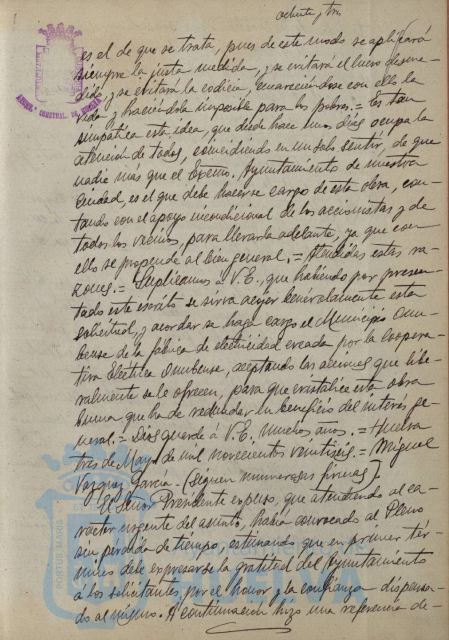 ochenta y tres
es el de que se trata, pues de este modo se aplicará
siempre la justa medida, y se evitará el lucro desme-
dido, y se evitará la codicia, encareciéndose con ello la
vida y haciéndola imposible para los pobres.= Es tan
simpática esta idea, que desde hace unos días ocupa la
atención de todos, coincidiendo en un solo sentir, de que
nadie más que el Excmo. Ayuntamiento de nuestra
Ciudad, es el que debe hacerse cargo de esta obra, con-
tando con el apoyo incondicional de los accionistas y de
todos los vecinos, para llevarla adelante, ya que con
ello se propende al bien general.= Atendidas estas ra-
zones.= Suplicamos á V.E., que habiendo por presen-
tado este escrito se sirva acojer benevolamente esta
solicitud, y acordar se haga cargo el Municipio Onu-
bense de la fábrica de electricidad creada por la Coopera-
tiva Eléctrica Onubense, aceptando las acciones que libe-
ralmente se le ofrecen, para que cristalice esta obra
buena que ha de redundar en beneficio del interés ge-
neral.= Dios guarde á V.E. muchos años.= Huelva
tres de Mayo de mil novecientos veintiseis.= Miguel
Vazquez García.- (Siguen numerosas firmas).
El Señor Presidente expuso, que atendiendo al ca-
rácter urgente del asunto, había convocado al Pleno
sin perdida de tiempo, estimando que en primer tér-
mino debe expresarse la gratitud del Ayuntamiento
á los solicitantes, por el honor y la confianza dispensa-
do al mismo. A continuación hizo una referencia de-
PORTUS MARIS